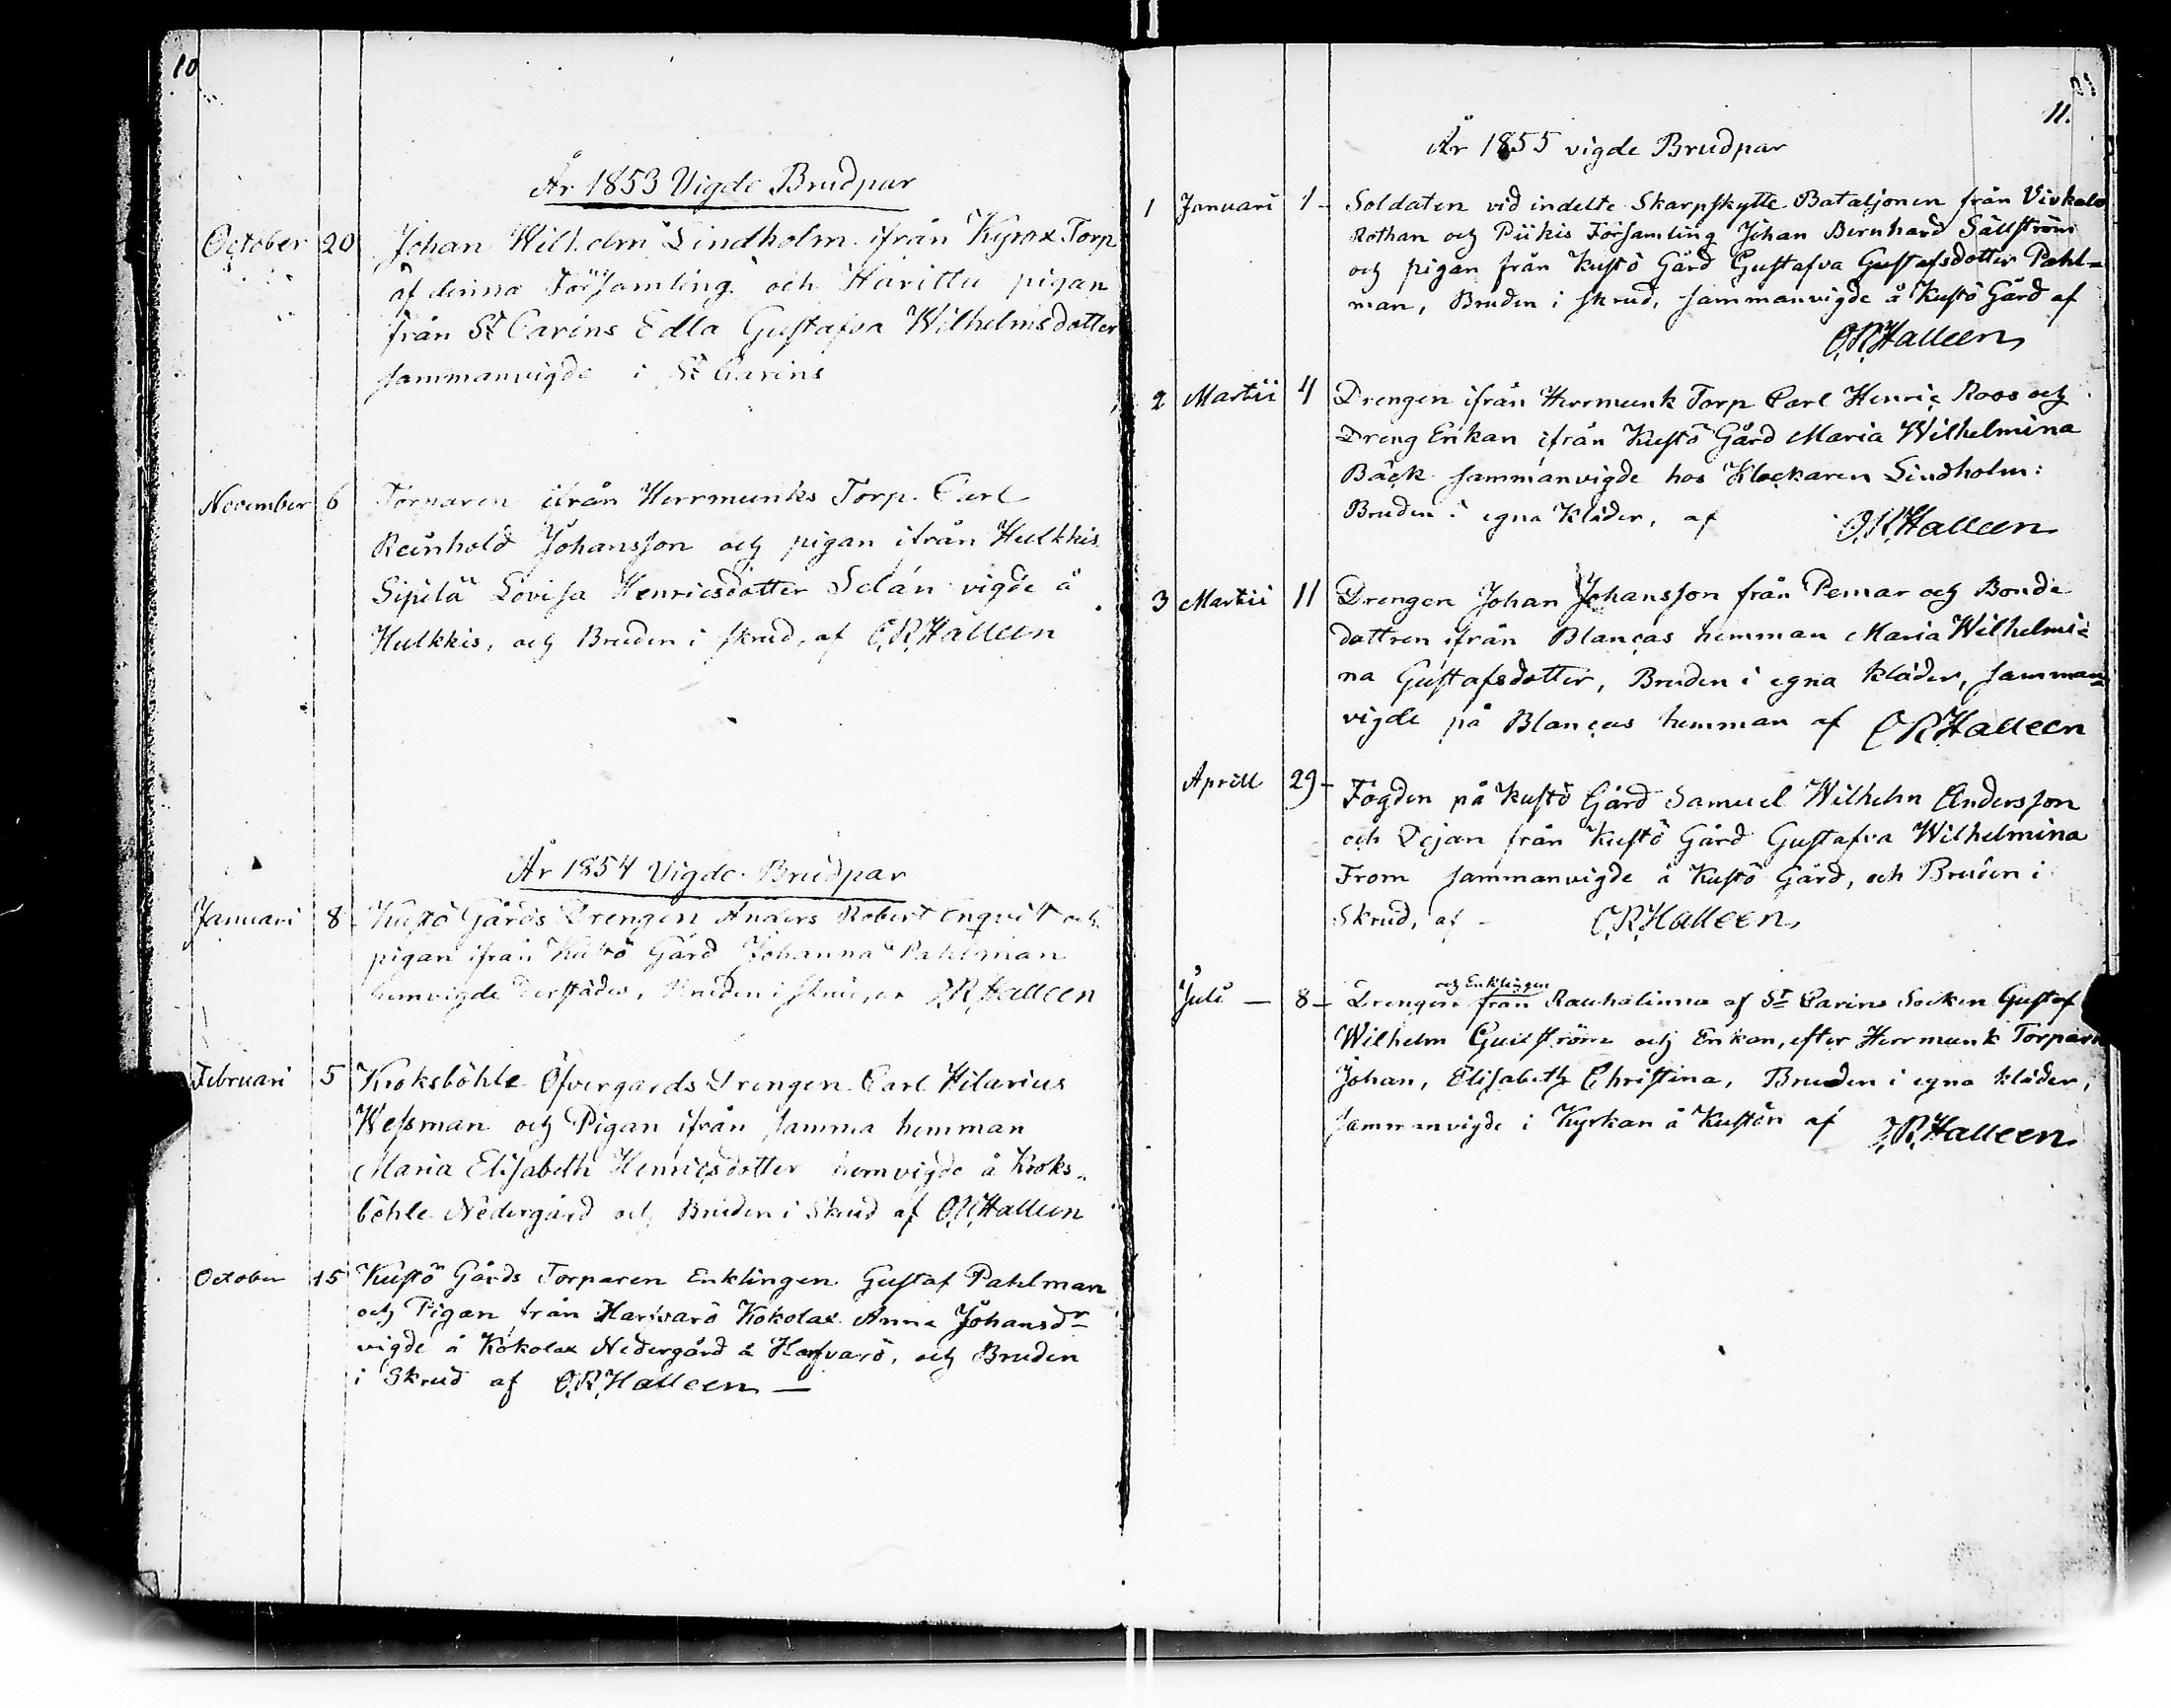 10
År 1853 Vigde Brudpar
October 20 Johan Wilhelm Lindholm ifrån Kyrox Torp
af denna Församling och Harittu pigan
från St Carins Edla Gustafva Wilhelmsdotter
sammanvigde i St Carins
November 6 Torparen ifrån Herrmunks Torp Carl
Reinhold Johansson och pigan ifrån Hulkkis
Sipilä Lovisa Henricsdotter Selán vigde å
Hulkkis, och Bruden i skrud, af C.R.Halleen
År 1854 Vigde Brudpar
Januari 8 Kustö Gårds Drengen Anders Robert Enqvist och
pigan ifrån Kustö Gård Johanna Pahlman
hemvigde derstädes, Bruden i skrud, af C.R.Halleen
Februari 5 Kroksböhle Öfvergårds Drengen Carl Hilarius
Wessman och Pigan ifrån samma hemman
Maria Elisabeth Henricsdotter hemvigde å Kroks-
böhle Nedergård och Bruden i Skrud af C.R.Halleen
October 15 Kustö Gårds Torparen Enklingen Gustaf Pahlman
och Pigan från Harfvarö Kokolax Anna Johansdr
vigde å Kokolax Nedergård å Harfvarö, och Bruden
i Skrud af C.R.Halleen —
11.
År 1855 vigde Brudpar
1 Januari 1 - Soldaten vid indelte Skarpskytte Bataljonen från
Rothan och Piikis Församling Johan Bernhard Sällström
och pigan från Kustö Gård Gustafva Gustafsdotter Pahl-
man, Bruden i skrud, sammanvigde å Kustö Gård af
C.R.Halleen
2 Martii 4 Drengen ifrån Herrmunk Torp Carl Henric Roos och
Dreng Enkan ifrån Kustö Gård Maria Wilhelmina
Bäck sammanvigde hos Klockaren Lindholm:
Bruden i egna kläder, af C.R.Halleen
3 Martii 11 Drengen Johan Johansson från Pemar och Bonde
dottren ifrån Blancas hemman Maria Wilhelmi-
na Gustafsdotter, Bruden i egna kläder, samman-
vigde på Blancas hemman af C.R.Halleen
Aprill 29 - Fogden på Kustö Gård Samuel Wilhelm Andersson
och Dejan från Kustö Gård Gustafva Wilhelmina
From sammanvigde å Kustö Gård, och Bruden i
Skrud, af - C.R.Halleen
och Enklingen
Juli — 8 - Drengen från Rauhalinna af St Carins Socken Gustaf
Wilhelm Guilström och Enkan, efter Herrmunk Torparn
Johan, Elisabeth Christina, Bruden i egna kläder,
sammanvigde i Kyrkan å Kustön af C.R.Halleen